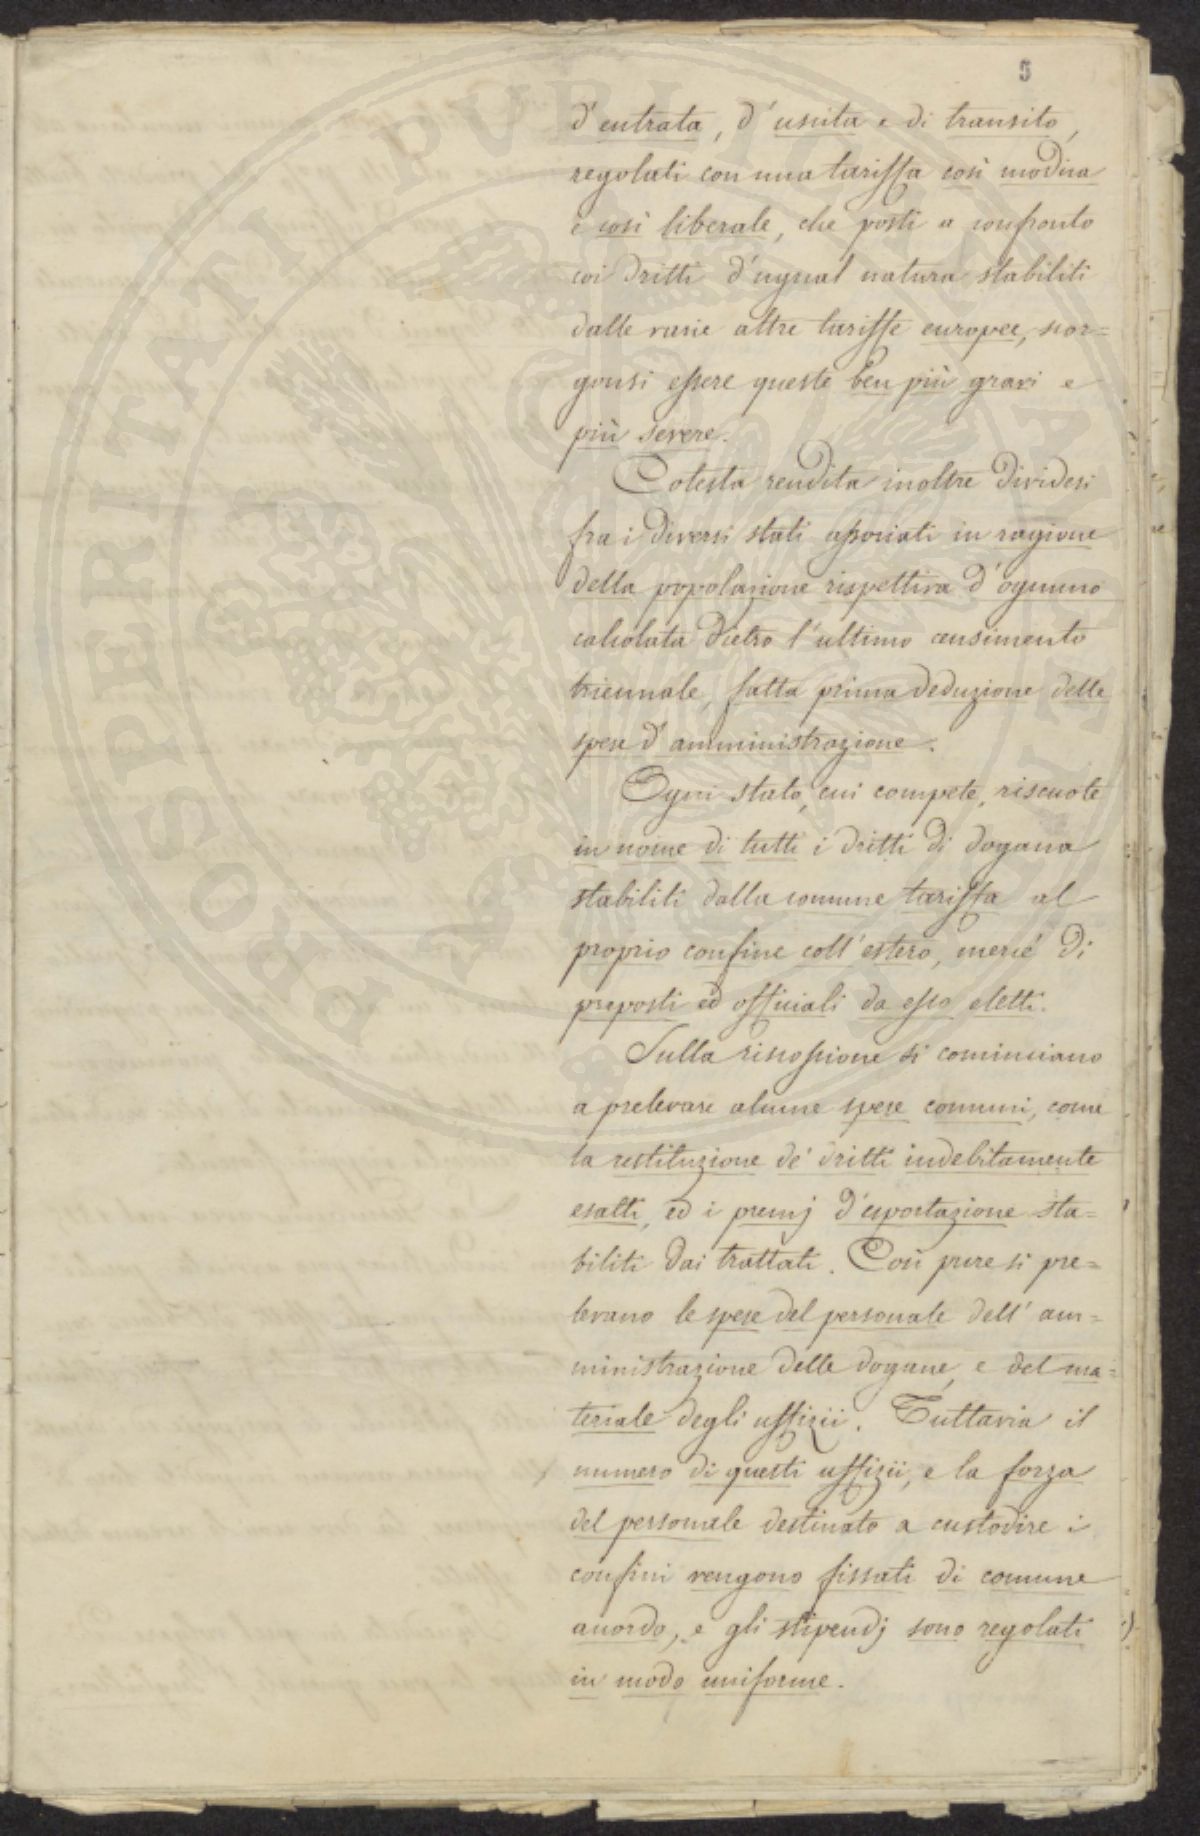 5
d'entrata, d'uscita e di transito,
regolati con una tariffa così modica
e così liberale, che posti a confronto
coi dritti d'ugual natura stabiliti
dalle varie altre tariffe europee, scor=
gonsi essere queste ben più gravi e
più severe.
Cotesta rendita inoltre dividesi
fra i diversi stati associati in ragione
della popolazione rispettiva d'ognuno
calcolata dietro l'ultimo censimento
triennale, fatta prima deduzione delle
spese d'amministrazione.
Ogni stato, cui compete, riscuote
in nome di tutti i dritti di dogana
stabiliti dalla comune tariffa al
proprio confine coll'estero, mercé di
preposti ed officiali da esso eletti.
Sulla riscossione si cominciano
a prelevare alcune spese comuni, come
la restituzione de' dritti indebitamente
esatti, ed i premj d'esportazione sta=
biliti dai trattati. Così pure si pre=
levano le spese del personale dell'am=
ministrazione delle dogane, e del ma=
teriale degli uffizii. Tuttavia il
numero di questi uffizii, e la forza
del personale destinato a custodire i
confini vengono fissati di comune
accordo, e gli stipendj sono regolati
in modo uniforme.
PROSPERITATI PUBLICAE